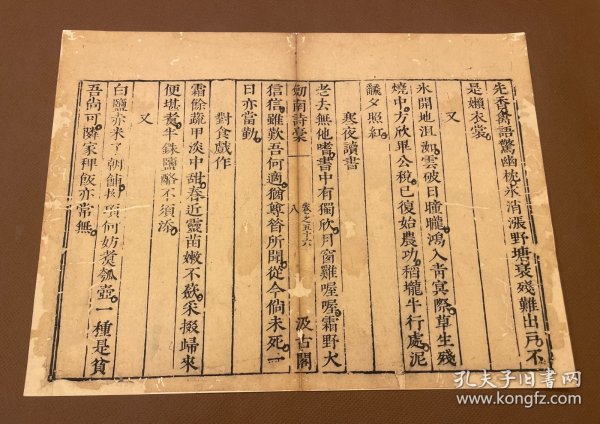 先香禽語驚幽枕氷消漲野塘衰殘難出戶不
是嬾衣裳
又
氷開地沮洳雲破日曈曨鴻入青冥際草生殘
燒中方欣畢公稅已復始農功稻壠牛行處泥
夕照紅
寒夜讀書
老去無他嗜書中有獨欣月窗雞喔喔霜野犬
劍南詩稾 卷之五十六 八 汲古閣
狺狺雖歎吾何適猶尊昔所聞從今倘未死一
日亦當勤
對食戲作
霜餘蔬甲淡中甜春近靈苗嫩不蘞采掇歸來
便堪煑半銖鹽酪不須添
又
白鹽赤米了朝餔拄項何妨煑瓠壺一種是貧
吾尚可鄰家稗飯亦常無
孔夫子旧书网
www.kongfz.com